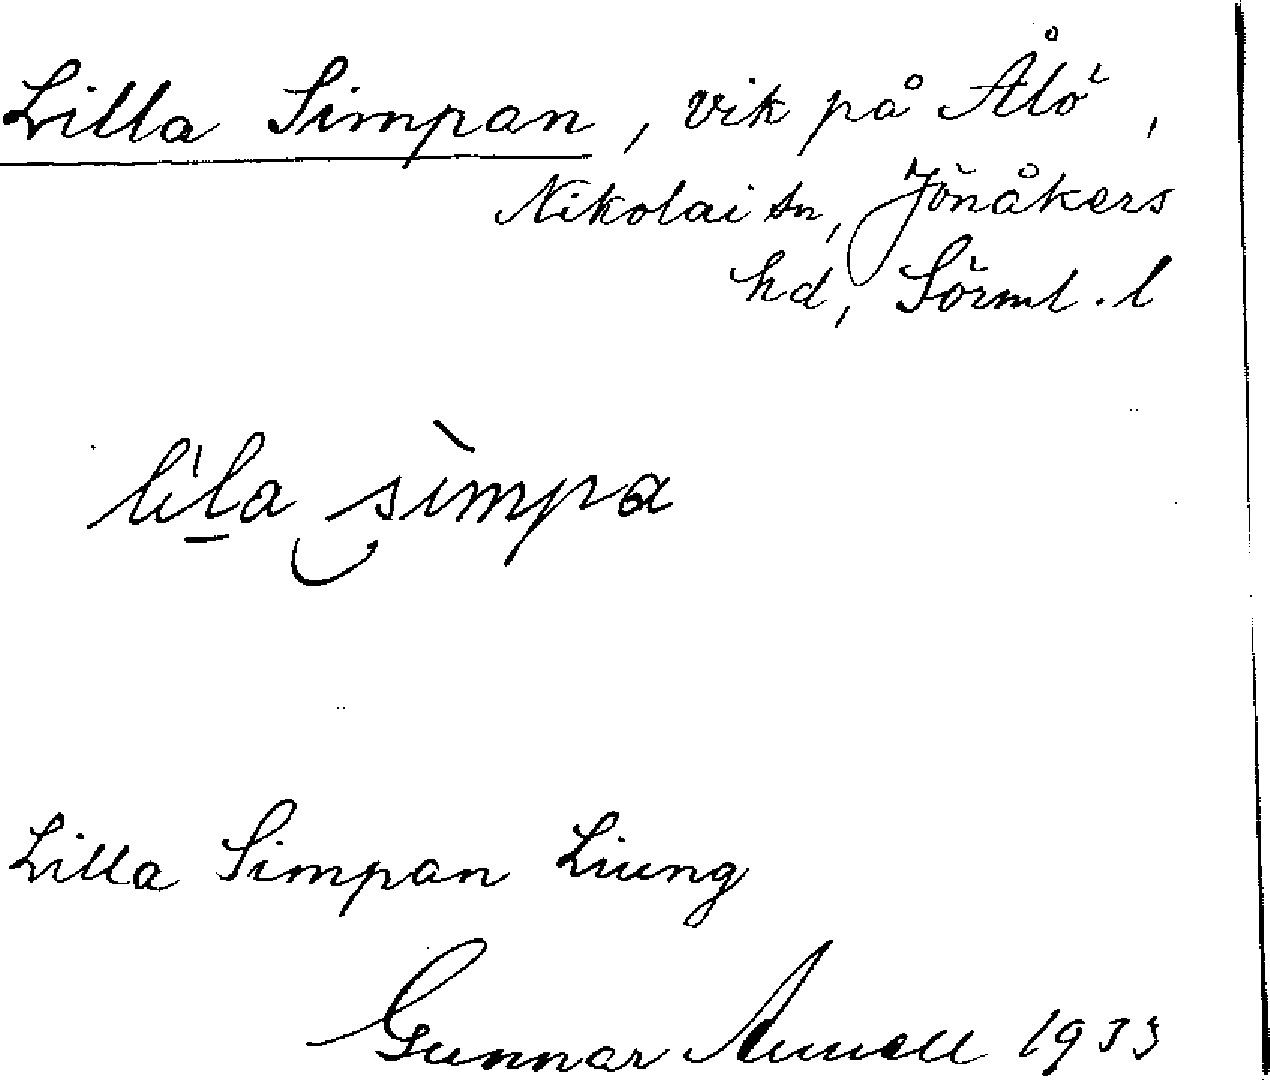 Lilla Simpan, vik på Ålö,
Nikolai sn, Jönåkers
hd, Sörml. l
lila simpa
Lilla Simpan Liung
Gunnar 1933